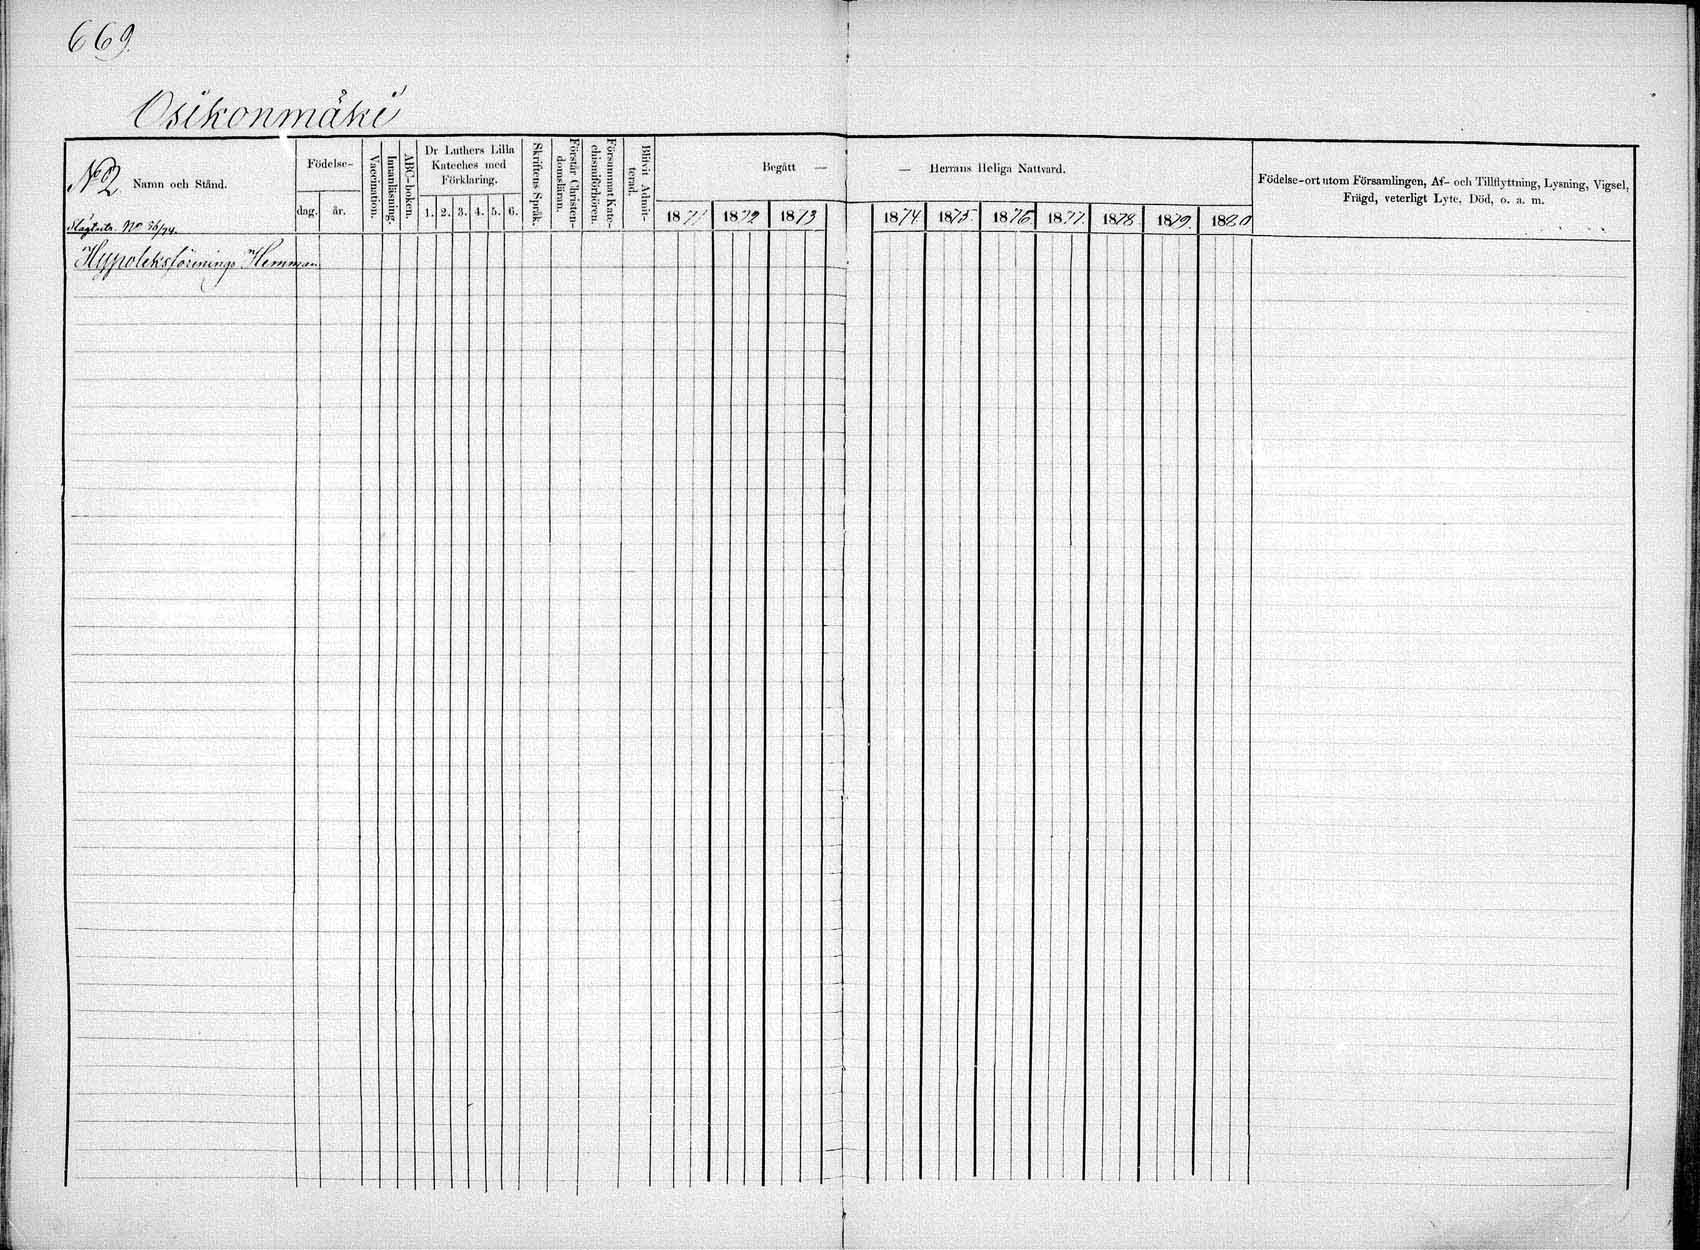 669.
Osikonmäki
No 2 Namn och Stånd.
Födelse-
dag. år.
Vaccination.
Innanläsning.
ABC-boken.
Dr Luthers Lilla
Kateches med
Förklaring.
1. 2. 3. 4. 5. 6.
Skriftens Språk.
Förstår Christen-
domsläran.
Försummat Kate-
chismiförhören.
Blifvit Admit-
terad.
Begått —
— Herrans Heliga Nattvard.
1871 1872 1873 1874 1875 1876 1877 1878 1879 1880
Födelse-ort utom Församlingen, Af- och Tillflyttning, Lysning, Vigsel,
Frägd, veterligt Lyte, Död, o. a. m.
No 36/74.
Hypoteksförenings Hemman